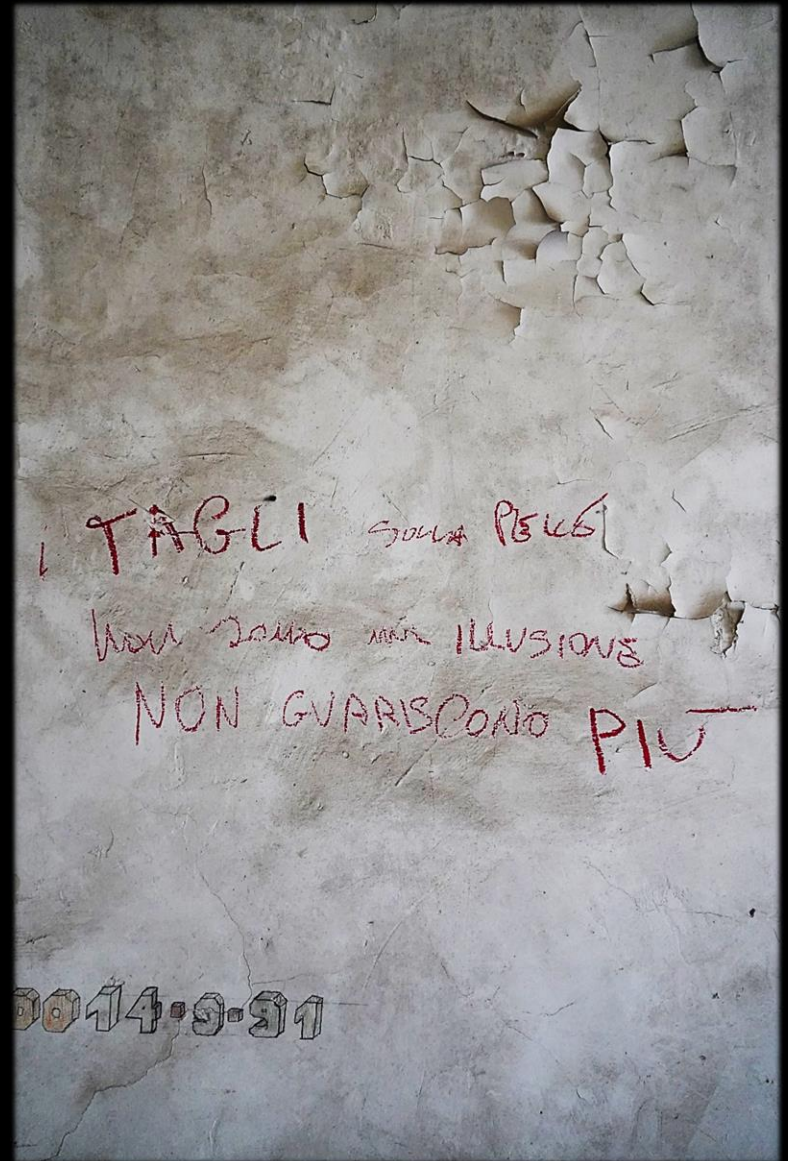 i TAGLI SULLA PELLE
NON SONO un ILLUSIONE
NON GUARISCONO PIÙ
0014·9·91